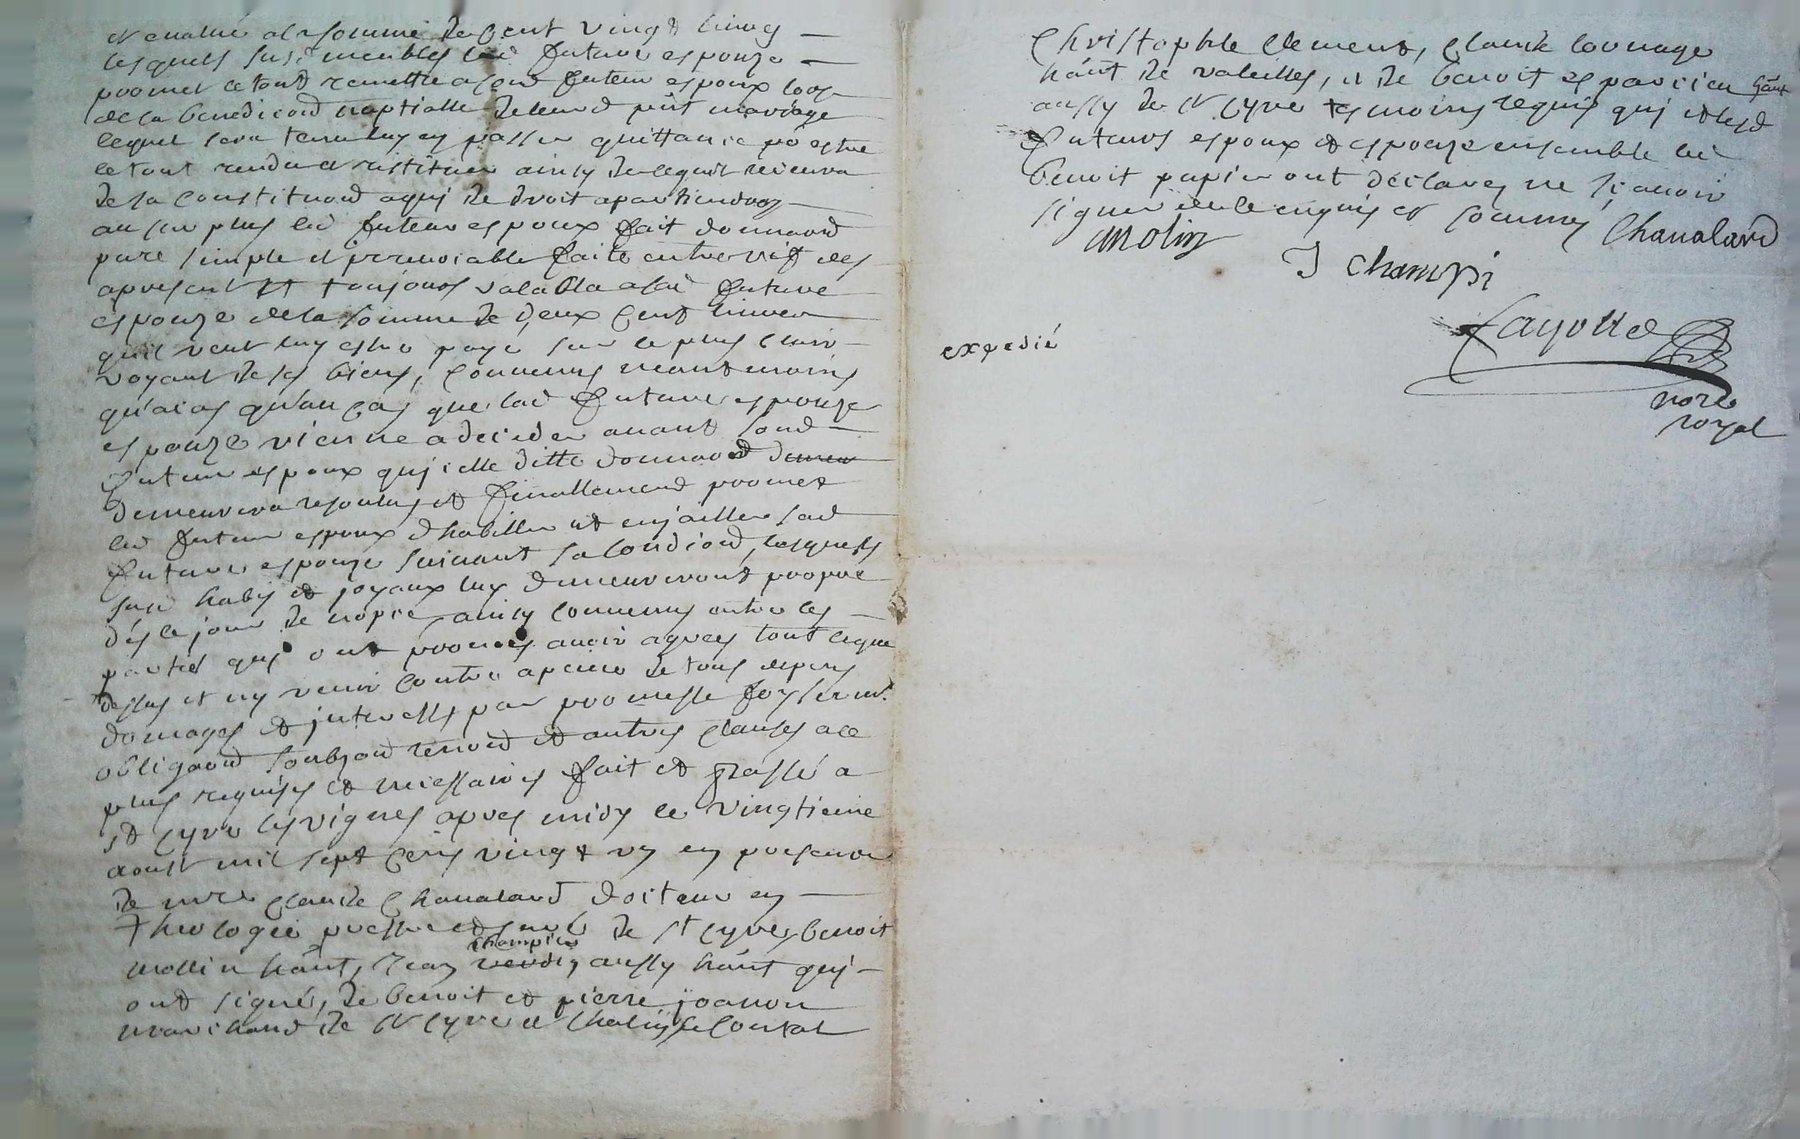 et evalué a la somme de cent vingt livres
lesquels susd meubles lad future espouze
promet le tout remettre a sond futeur espoux lors
de la benediciond nuptialle de leurd pnt mariage
lequel sera tenu luy en passer quittance po estre
le tout rendu et restitue ainsy de lequit reviendra
de la constituond a qui de droit apartiendra
au surplus led futeur espoux fait donnaond
pure simple et irrevoiable faite entre vifs des
apresent et toujours valable a lad future
espouze de la somme de deux cent livres
qu'il veut luy estre payé sur le plus clair
voyant de ses biens, convenus neantmoins
qu'aicas qu'au cas que lad future espouze
espouze vienne a deceder avant sond
futeur espoux qu'icelle ditte donnaond demeu
demeurera resolus et finallement promet
led futeur espoux d'habiller et enjoailler sad
future espouze suivant sa condiond, lesquels
susd habis et joyaux luy demeureront propre
dés le jour de nopce, ainsy convenus entre les
parties qui ont promis avoir agrees tout ce que
dessus et ny venir contre a peine de tous depens
domages et interests par promesse foy serm.t
obligaond soubzond renond et autres clauses a ce
plus requises et necessaires fait et passé a
st cyre les vignes apres midy le vingtieme
aoust mil sept cens vingt un en presence
de mre claude Chavalard docteur en
theologie prestre et curé de st cyre, benoit
champier
mollin hant, Jean verdy aussy hant qui
ont signé, de benoit et pierre joannon
marchand de st cyre et Chalin le Contal
Christophle Clement, Claude Counage
hant de valeilles, et de benoit es parcieu hant
aussy de st cyre tesmoins requis qui et lesd
futeurs espoux et espouze ensemble led
benoit papier ont déclarez ne sçavoir
signer de ce enquis et sommés Chavalard
molin
J champi
expedié
fayolle
nore
royal